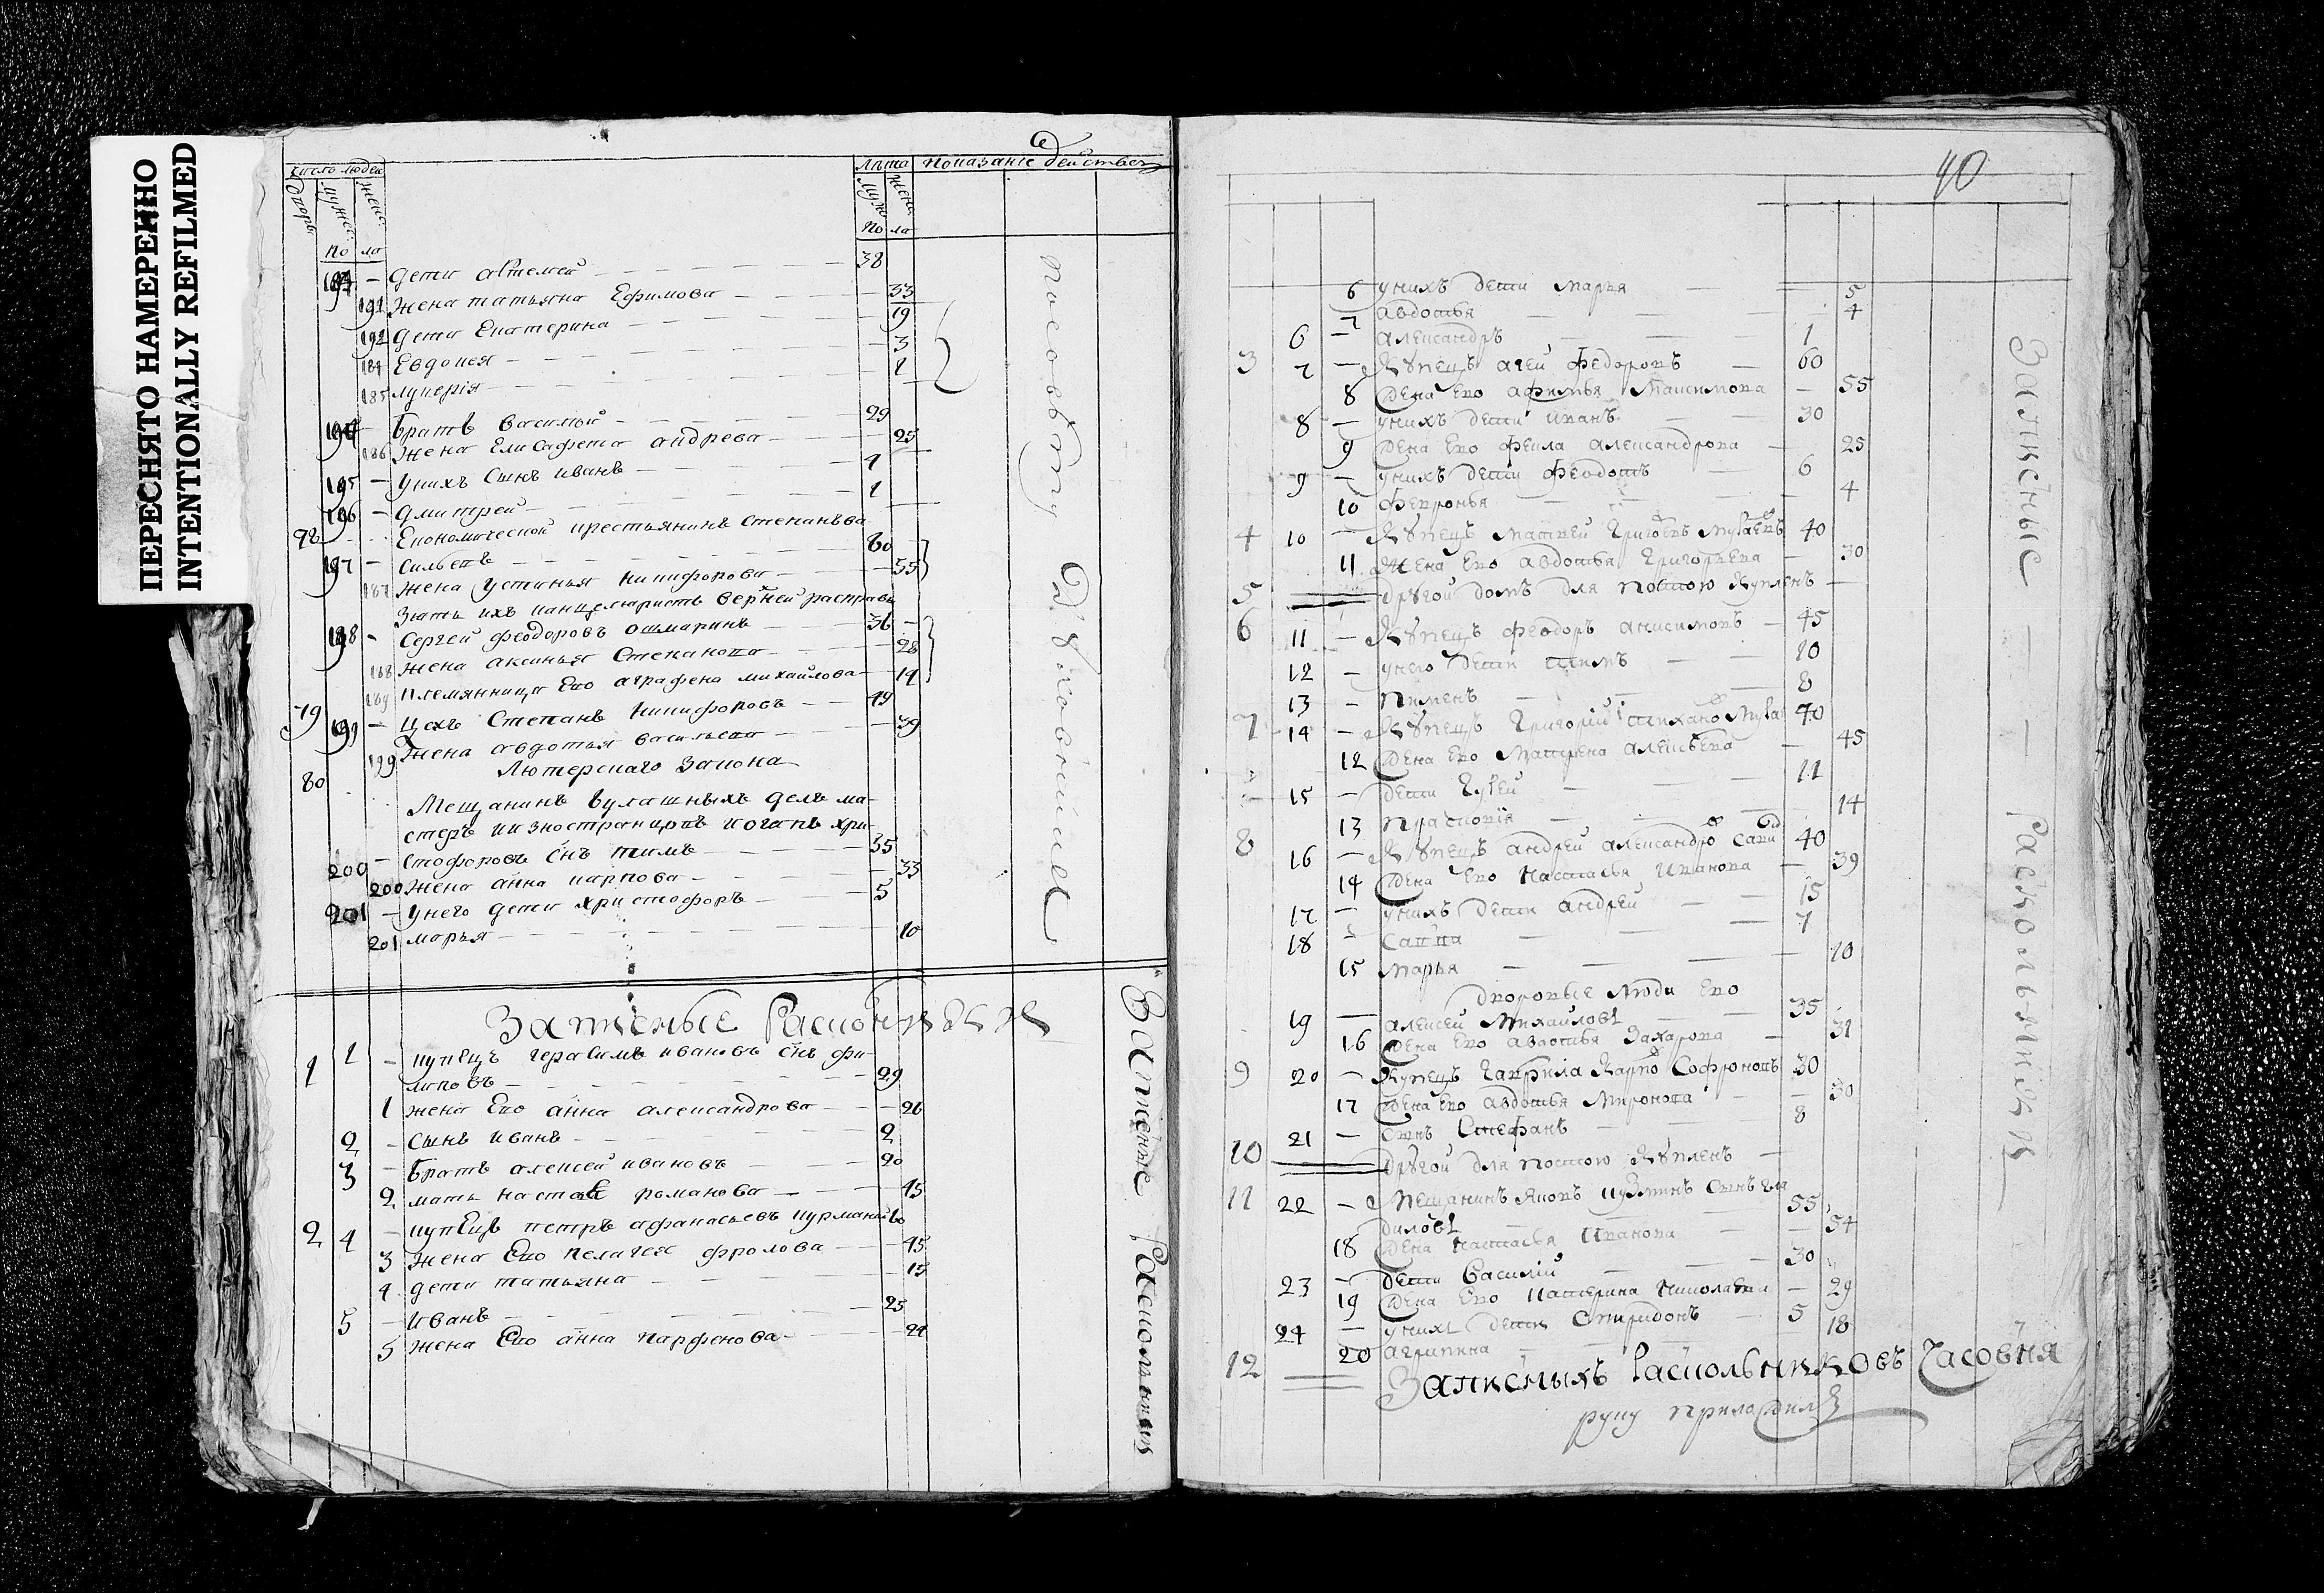 ПЕРЕСНЯТО НАМЕРЕННО
INTENTIONALLY REFILMED
число людей
лѣта
показанїе действ
мужес
женс
по ла
по ла
дети 38
191 жена татьяна Ефимова 33
192 дети Екатерина 19
184 Евдокея 3
185 лукерїя 1
братъ василей 29
186 жена Елисафета андрева 25
195 уних сынъ иванъ 4
196 дмитрей 1
Економической крестьянинъ Степанъ ва
197 сильевъ 60
187 жена устинья никифорова 55
зять ихъ канцеляристъ верхней расправы
198 Сергей феодоровъ ошмаринъ 36
188 жена аксинья Степанова 28
189 племянница Ево аграфена михайлова 14
79 199 цехъ Степанъ никифоровъ 49
199 жена авдотья васильева 39
Лютерскаго закона
80
Мещанинъ булашныхъ делъ ма-
стеръ изиностранцовъ иоганъ хри-
200 стофоровъ снъ тимъ 35
200 жена анна карпова 33
201 унего дети христофоръ 5
201 марья 10
по совету Духовнике
Записные Раскольники
1 1 купецъ герасимъ ивановъ снъ фи-
липовъ 29
1 жена Ево анна александрова 26
2 сынъ иванъ 2
3 братъ алексей ивановъ 20
2 мать настас романова 45
2 4 купецъ петръ афанасьевъ
3 жена Ево пелагея фролова 45
4 дети татьяна 15
5 Иванъ 25
5 жена Ево анна парфенова 24
Записные Раскольники
40
6 унихъ дети марья 5
7 авдотья 4
6 александръ 1
3 7 Купецъ агей федоровъ 60
8 жена Ево афимья Максимова 55
8 унихъ дети иванъ 30
9 жена Ево фекла александрова 25
9 унихъ дети феодотъ 6
10 февронья 4
4 10 Купецъ матвей 40
11 жена Ево авдотья григорьева 30
5 другой домъ для постою купленъ
6 11 Купецъ феодоръ анисимовъ 45
12 унего дети тимъ 10
13 Пименъ 8
7 14 Купецъ григорїй 70
12 жена Ево матрена алексѣева 45
15 дети гурей 11
13 прасковїя 14
8 16 Купецъ андрей александро сави 40
14 жена Ево настасья иванова 39
17 унихъ дети андрей 15
18 савва 7
15 марья 10
дворовые люди Ево
19 алексей михайловъ 35
16 жена Ево авдотья захарова 31
9 20 Купецъ гаврила карпо Софроновъ 30
17 жена Ево авдотья миронова 30
21 сынъ Стефанъ 8
10 другой для постою купленъ
11 22 мещанинъ яковъ кузминъ сынъ
диловъ 55
18 жена настасья иванова 54
23 дети василїй 30
19 жена Ево катерина николаева 29
24 унихъ дети Спиридонъ 5
20 агрипина 18
12 Записныхъ Раскольниковъ Часовня
руку приложилъ
Записные раскольники